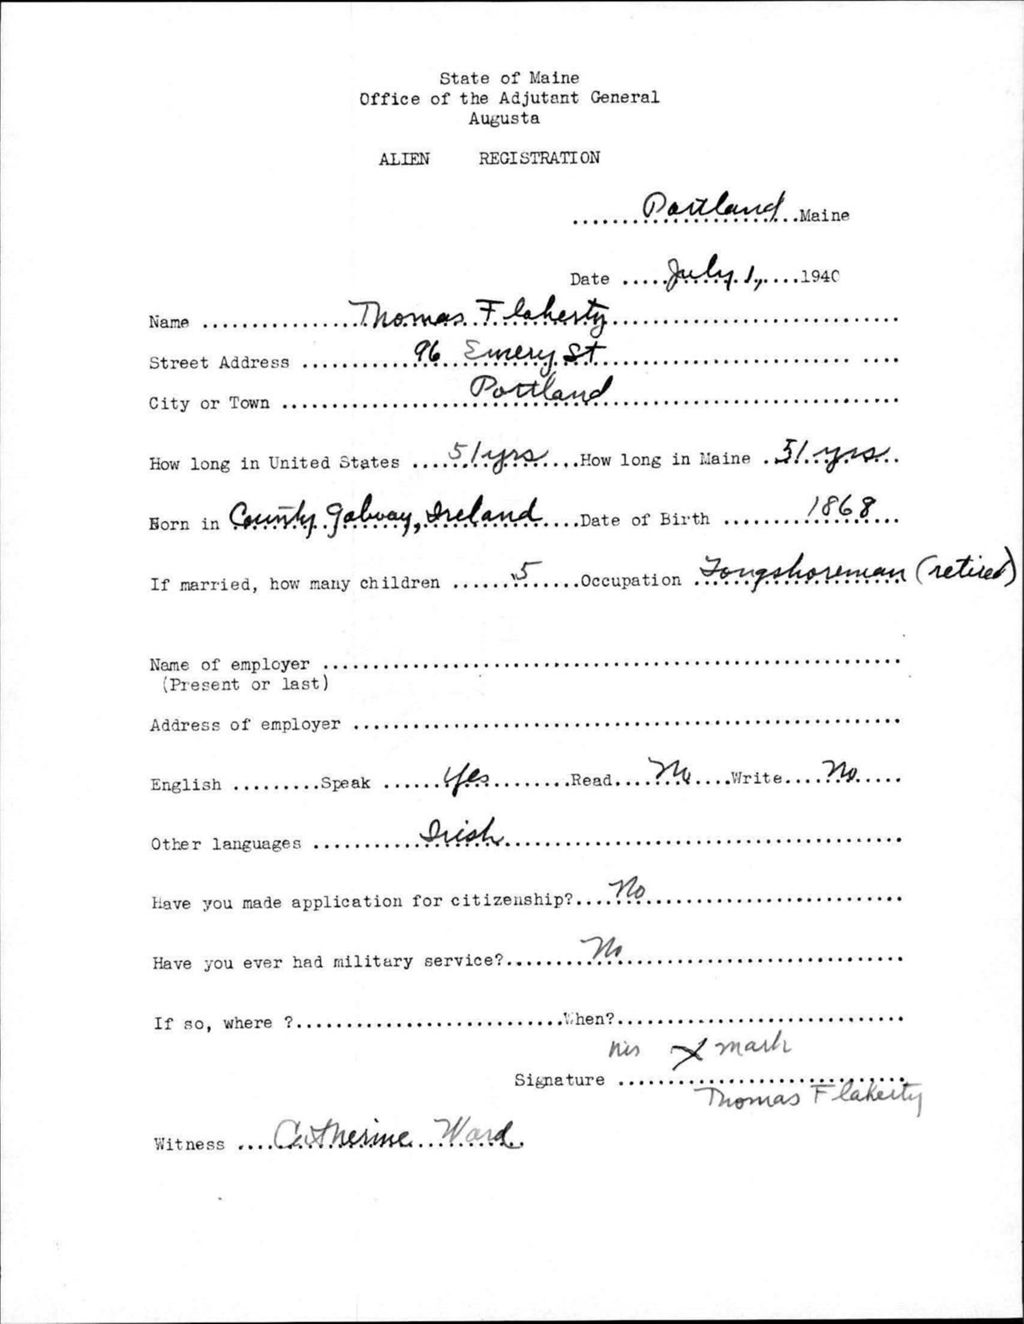 State of Maine
Office of the Adjutant General
Augusta
ALIEN REGISTRATION
.......Portland..Maine
Date .....July 1,....1940
Name ................Thomas Flaherty..............................
Street Address ............96 Emery St.......................... ....
City or Town ....................Portland..............................
How long in United States ....51 yrs....How long in Maine .51 yrs.
Born in County Galway, Ireland....Date of Birth ........1868...
If married, how many children ......5......Occupation .Longshoreman (retired)
Name of employer ..........................................................
(Present or last)
Address of employer .......................................................
English .........Speak ......Yes........Read....No....Write....No.....
Other languages ...........Irish........................................
Have you made application for citizenship?....No..........................
Have you ever had military service?........No............................
If so, where ?...........................When?.............................
his X mark
Signature .............................
Thomas Flaherty
Witness ....Catherine Ward.